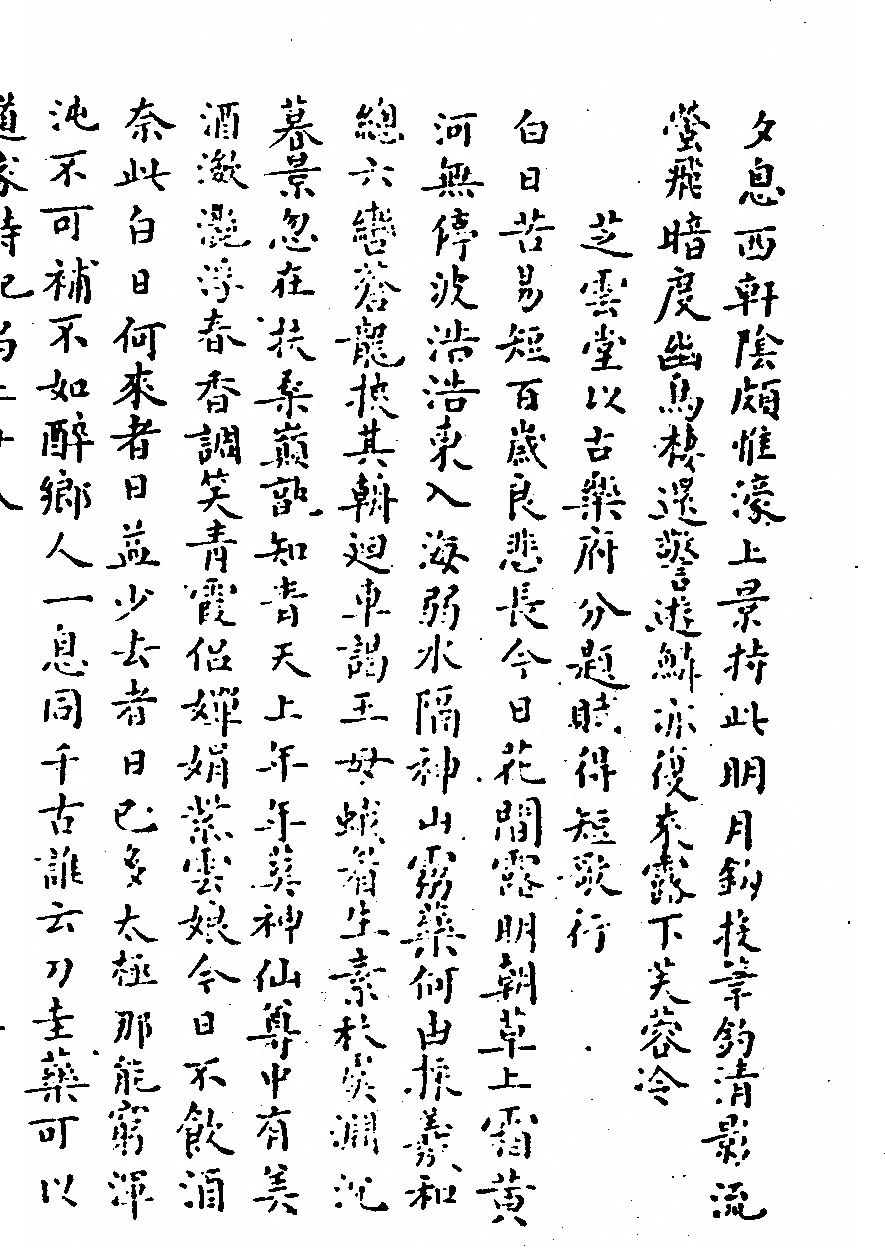 夕息西軒陰頗惟濠上景持此明月鉤投竿釣清影流
螢飛暗度幽鳥棲還驚遊鯈亦復來露下芙蓉冷
芝雲堂以古樂府分題時得短歌行
白日苦易短百歲良悲長今日花間露明朝草上霜黄
河無停波浩浩東入海弱水隔神山靈藥何由採羲和
總六轡蒼龍挾其輈迴車謁王母蛾眉生素秋虞淵沉
暮景忽在扶桑巔詎知青天上年年葬神仙尊中有美
酒瀲灔浮春香調笑青霞侶嬋娟紫雲娘今日不飲酒
奈此白日何來者日益少去者日已多太極那能窮渾
沌不可補不如醉鄉人一息同千古誰云刀圭藥可以